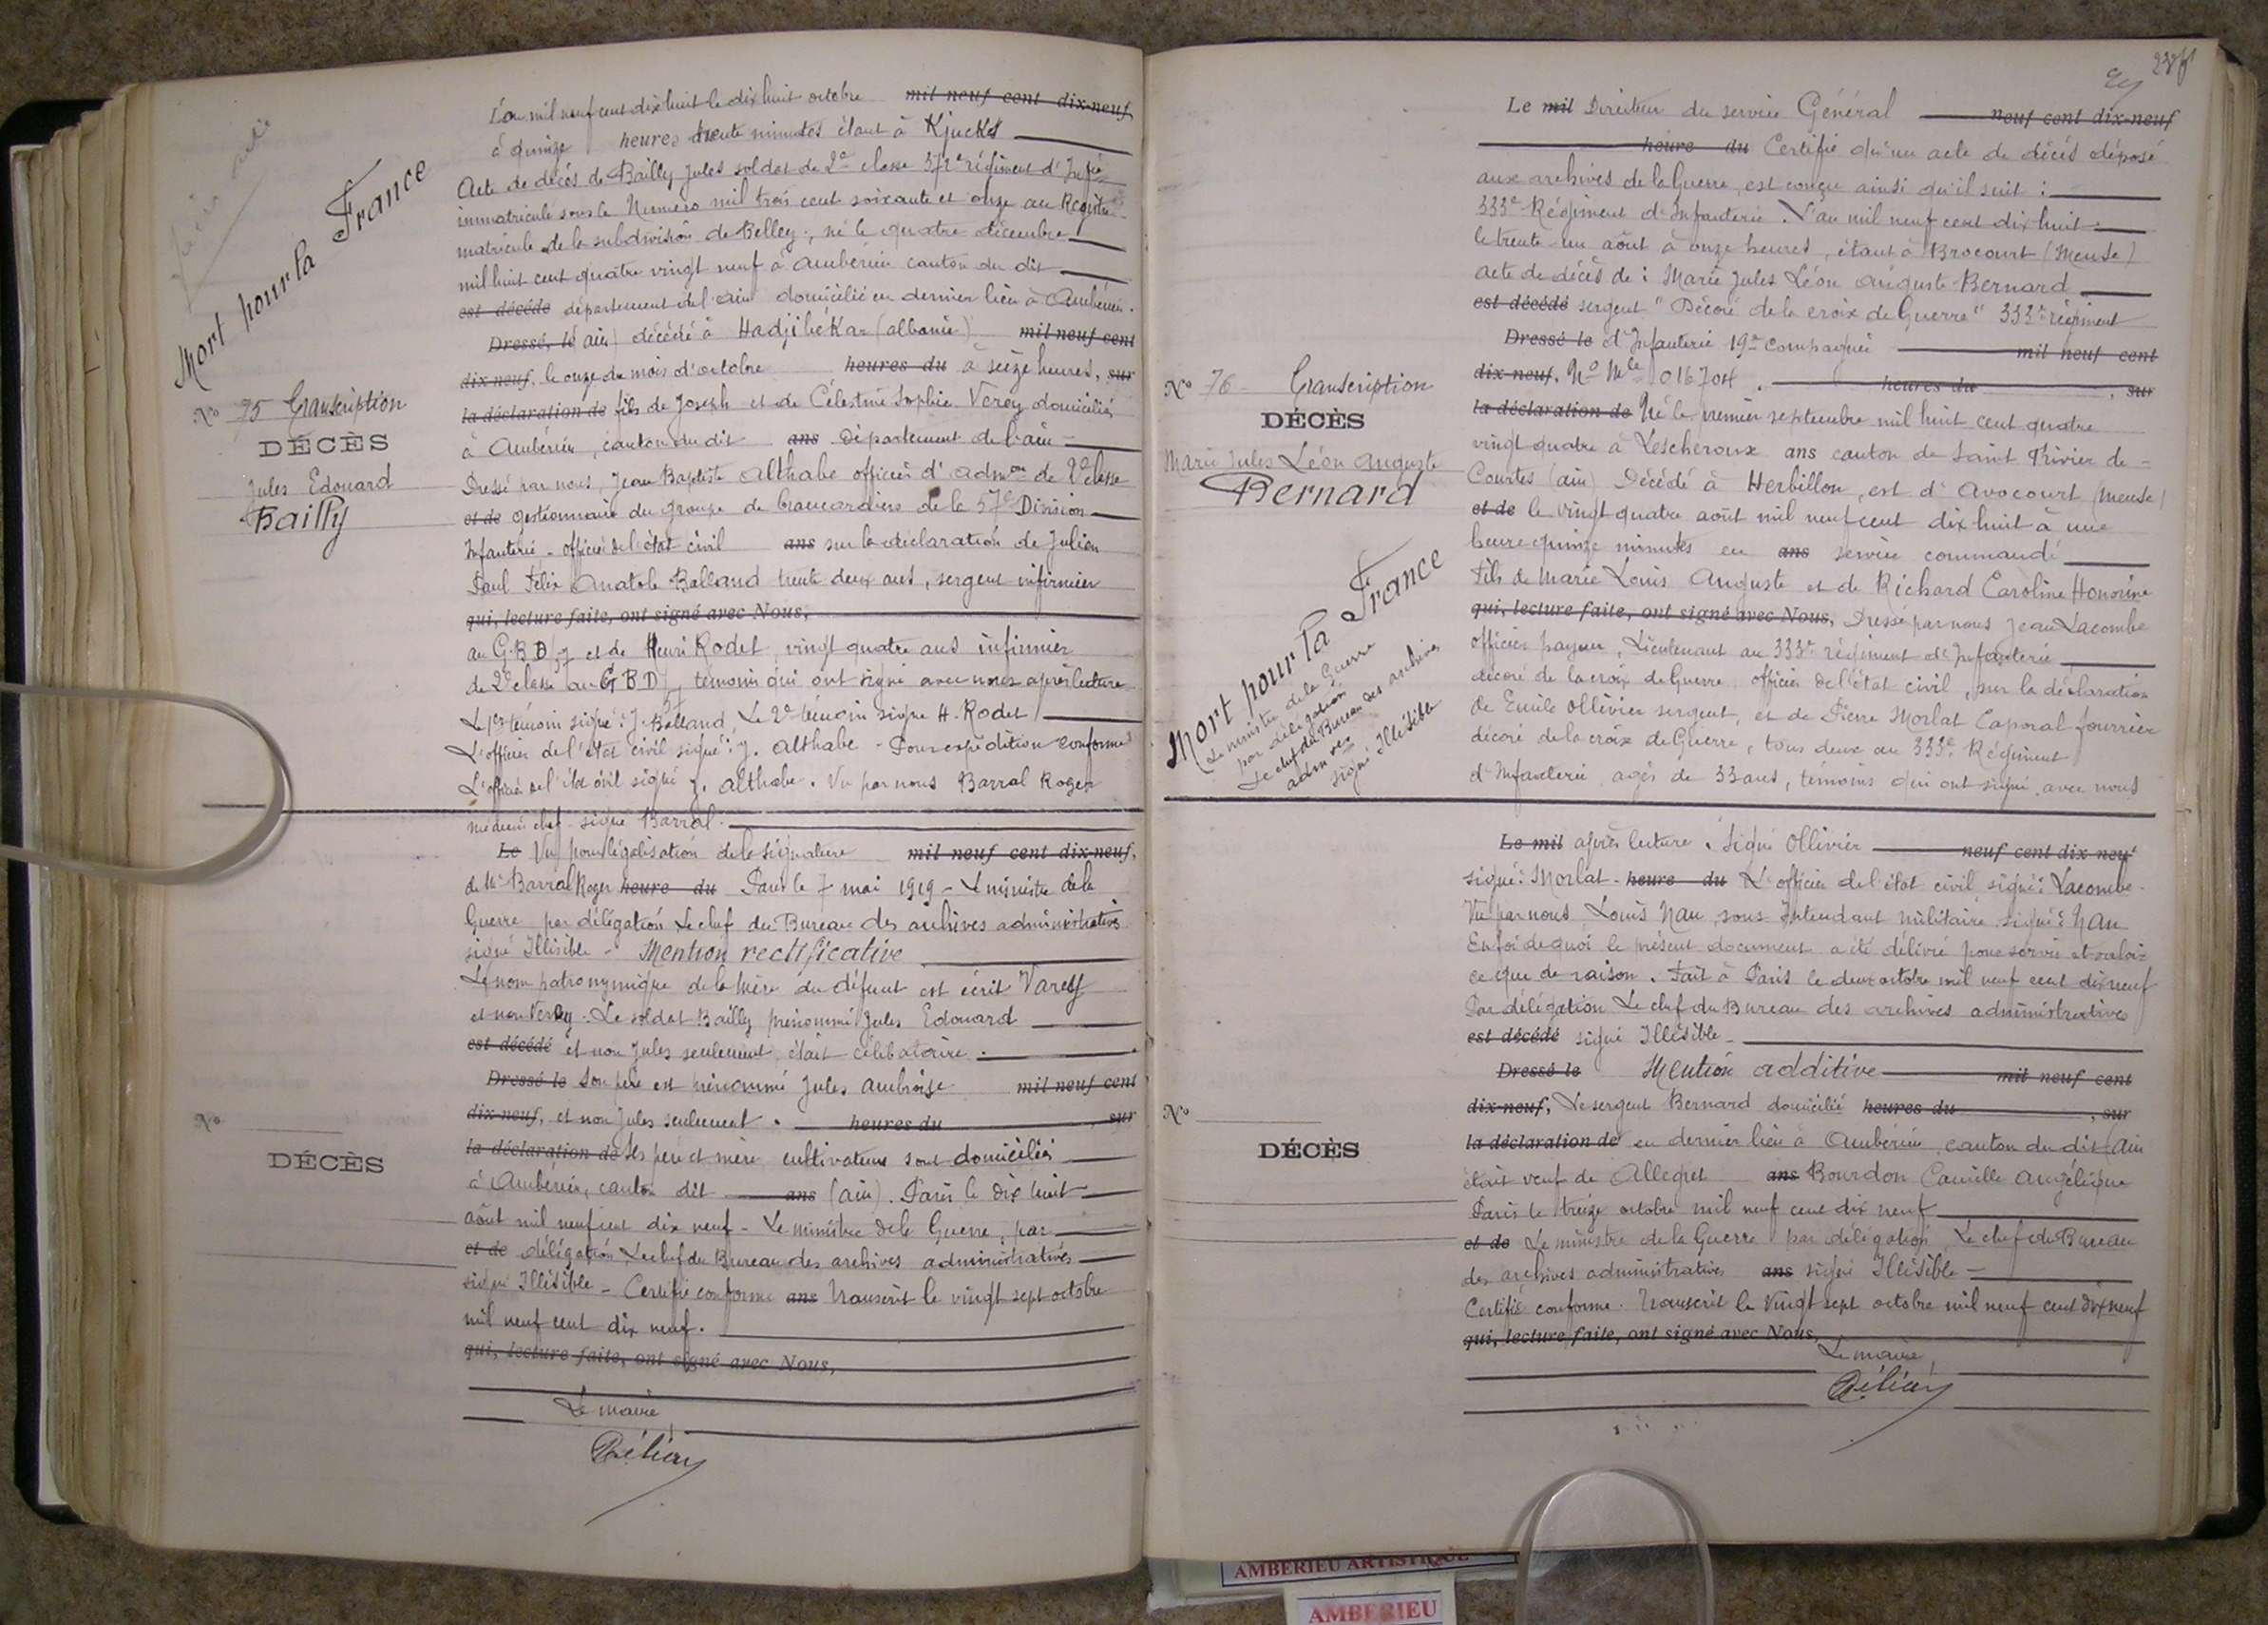 Mort pour la France
N° 75 Transcription
DÉCÈS
Jules Edouard
Bailly
L'an mil neuf cent dix huit le dix huit octobre mil neuf cent dix-neuf
à quinze heures trente minutes étant à Kjuckës
Acte de décès de Bailly Jules soldat de 2e classe 372e régiment d'Infie
immatriculé sous le Numéro mil trois cent soixante et onze au Registre
matricule de la subdivision de Belley, né le quatre décembre
mil huit cent quatre vingt neuf à Ambérieu canton du dit
est décédé département de l'ain domicilié en dernier lieu à Ambérieu.
Dressé, le (ain) décédé à Hadjibékar (albanie) mil neuf cent
dix-neuf, le onze du mois d'octobre heures du à seize heures, sur
la déclaration de fils de Joseph et de Célestine Sophie Verey domiciliés
à Ambérieu, canton du dit ans Département de l'ain
Dressé par nous, Jean Baptiste Althabe officier d'admon de 2e classe
et de gestionnaire du groupe de brancardiers de la 57e Division
Infanterie - officier de l'état civil ans sur la déclaration de Julien
Paul Félix Anatole Balland trente deux ans, sergent infirmier
qui, lecture faite, ont signé avec Nous,
au G.B.D 57 et de Henri Rodet vingt quatre ans infirmier
de 2e classe au G B D 57, témoins qui ont signé avec nous après lecture
Le 1er témoin signé : J. Balland Le 2e témoin signe H. Rodet
L'officier de l'état civil signé : J. Althabe - Pour expédition conforme
L'officier de l'état civil signé J. Althabe. Vu par nous Barral Roger
médecin chef signé Barral.
Le Vu pour légalisation de la signature mil neuf cent dix-neuf,
de Mr Barral Roger heure du Paris le 7 mai 1919 - Le ministre de la
Guerre par délégation Le chef du Bureau des archives administratives
signé Illisible - Mention rectificative
Le nom patronymique de la mère du défunt est écrit Varey
et non Verey. Le soldat Bailly prénommé Jules Edouard
est décédé et non Jules seulement, était célibataire.
Dressé le Son père est prénommé Jules Ambroise mil neuf cent
dix-neuf, et non Jules seulement. heures du sur
la déclaration de Ses père et mère cultivateurs sont domiciliés
à Ambérieu, canton dit ans (ain). Paris le dix huit
août mil neuf cent dix neuf - Le ministre de la Guerre, par
et de délégation Le chef du Bureau des archives administratives
signé Illisible - Certifié conforme ans Transcrit le vingt sept octobre
mil neuf cent dix neuf.
qui, lecture faite, ont signé avec Nous,
Le maire
N°
DÉCÈS
Le mil Directeur du service Général neuf cent dix-neuf
heure du Certifie qu'un acte de décès déposé
aux archives de la Guerre, est conçu ainsi qu'il suit :
333e Régiment d'Infanterie. L'an mil neuf cent dix huit
le trente-un août à onze heures, étant à Brocourt (Meuse)
acte de décès de : Marie Jules Léon Auguste Bernard
est décédé sergent "Décoré de la croix de Guerre" 333e régiment
Dressé le d'Infanterie 19e compagnie mil neuf cent
dix-neuf, No Mle 016704. heures du , sur
la déclaration de Né le premier septembre mil huit cent quatre
vingt quatre à Lescheroux ans canton de Saint Trivier de
Courtes (ain) Décédé à Herbillon, est d'Avocourt (Meuse)
et de le vingt quatre août mil neuf cent dix huit à une
heure quinze minutes en ans service commandé
Fils de Marie Louis Auguste et de Richard Caroline Honorine
qui, lecture faite, ont signé avec Nous, Dressé par nous Jean Lacombe
officier payeur, Lieutenant au 333e régiment d'Infanterie
décoré de la croix de Guerre officier de l'état civil, sur la déclaration
de Emile Ollivier sergent, et de Pierre Morlat Caporal fourrier
décoré de la croix de Guerre, tous deux au 333e Régiment
d'Infanterie agés de 33 ans, témoins qui ont signé avec nous
N° 76 Transcription
DÉCÈS
Marie Jules Léon Auguste
Bernard
Mort pour la France
Le ministre de la Guerre
par délégation
Le chef du Bureau des archives
admves
signé Illisible
Le mil après lecture. Signé Ollivier neuf cent dix neuf
signé : Morlat - heure du L'officier de l'état civil signé : Lacombe -
Vu par nous Louis Nau, sous Intendant militaire signé : Nau
En foi de quoi le présent document a été délivré pour servir et valoir
ce que de raison. Fait à Paris le deux octobre mil neuf cent dix neuf
Par délégation Le chef du Bureau des archives administratives
est décédé signé Illisible -
Dressé le Mention additive mil neuf cent
dix-neuf, Le sergent Bernard domicilié heures du , sur
la déclaration de en dernier lieu à Ambérieu, canton du dit (Ain
était veuf de Allegret ans Bourdon Camille Angélique
Paris le treize octobre mil neuf cent dix neuf
et de Le ministre de la Guerre par délégation Le chef du Bureau
des archives administratives ans signé Illisible -
Certifié conforme. Transcrit le Vingt sept octobre mil neuf cent dix neuf
qui, lecture faite, ont signé avec Nous,
Le maire
N°
DÉCÈS
AMBERIEU ARTISTIQUE
AMBERIEU